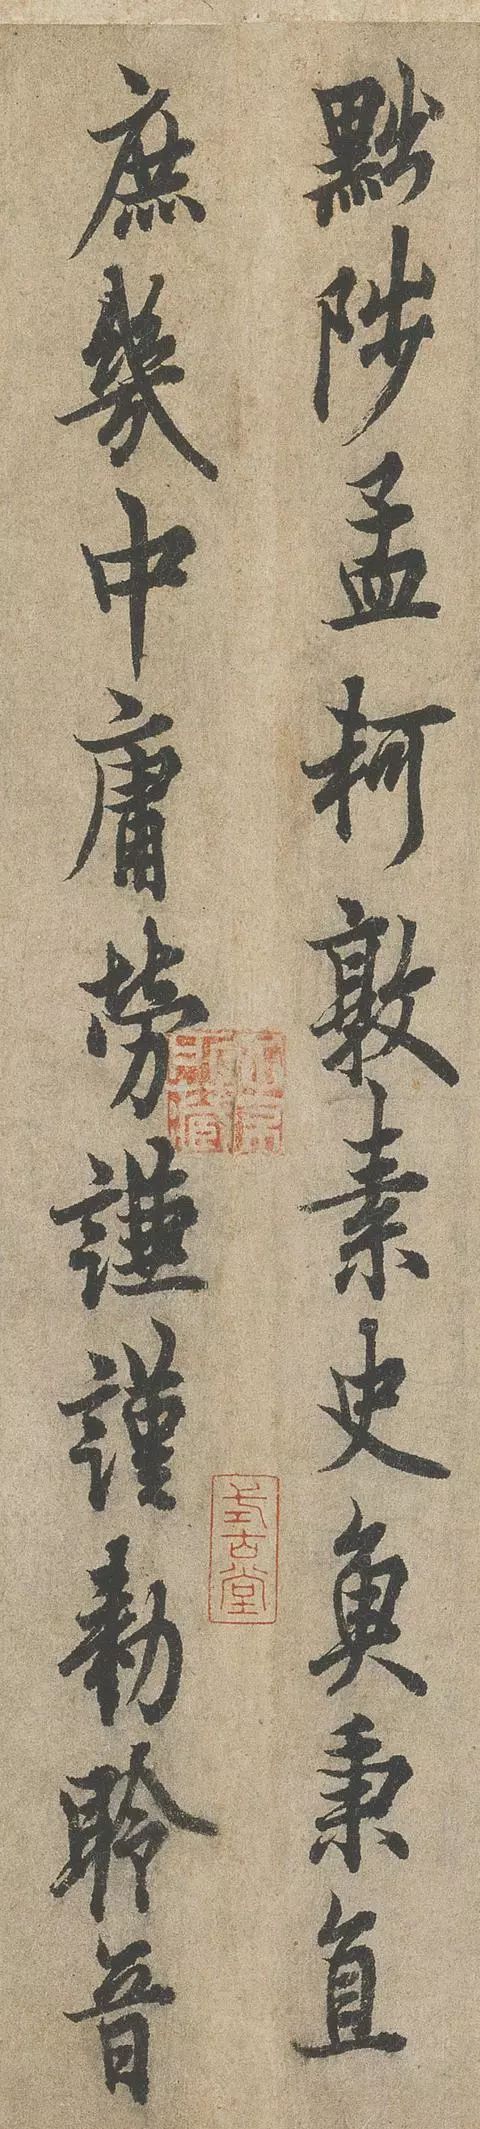 黜陟孟軻敦素史魚秉直
庶幾中庸勞謙謹勅聆音
式古堂